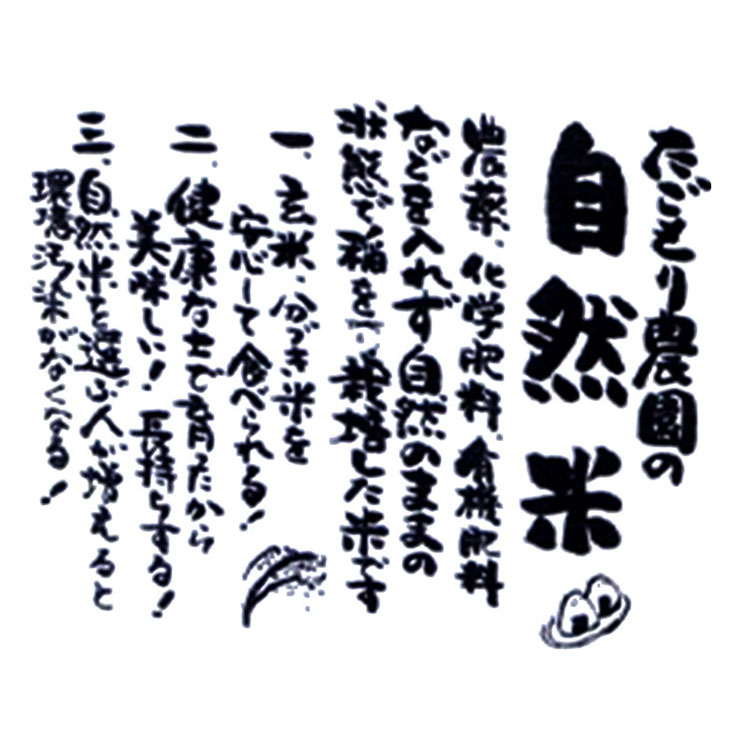 たごもり農園の
自然米
農薬、化学肥料、有機肥料
などを入れず自然のままの
状態で稲を栽培した米です
一、玄米・分づき米を
安心して食べられる!
二、健康な土で育ったから
美味しい!長持ちする!
三、自然米を選ぶ人が増えると
環境汚染がなくなる!